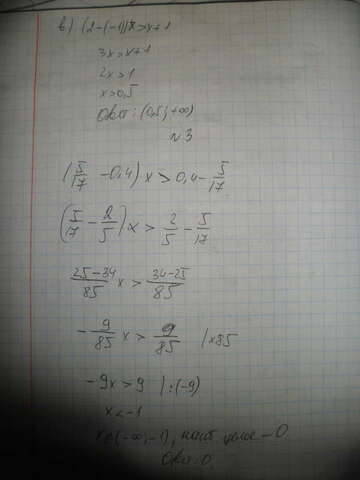 в) (2-(-1))x>x+1
3x>x+1
2x>1
x>0,5
Ответ: (0,5; +∞)
№3
(5/17 - 0,4) x > 0,4 - 5/17
(5/17 - 2/5) x > 2/5 - 5/17
25-34/85 x > 34-25/85
- 9/85 x > 9/85 |×85
- 9x > 9 |:(-9)
x < -1
x ∈ (-∞; -1), наиб целое - 0
Ответ: 0